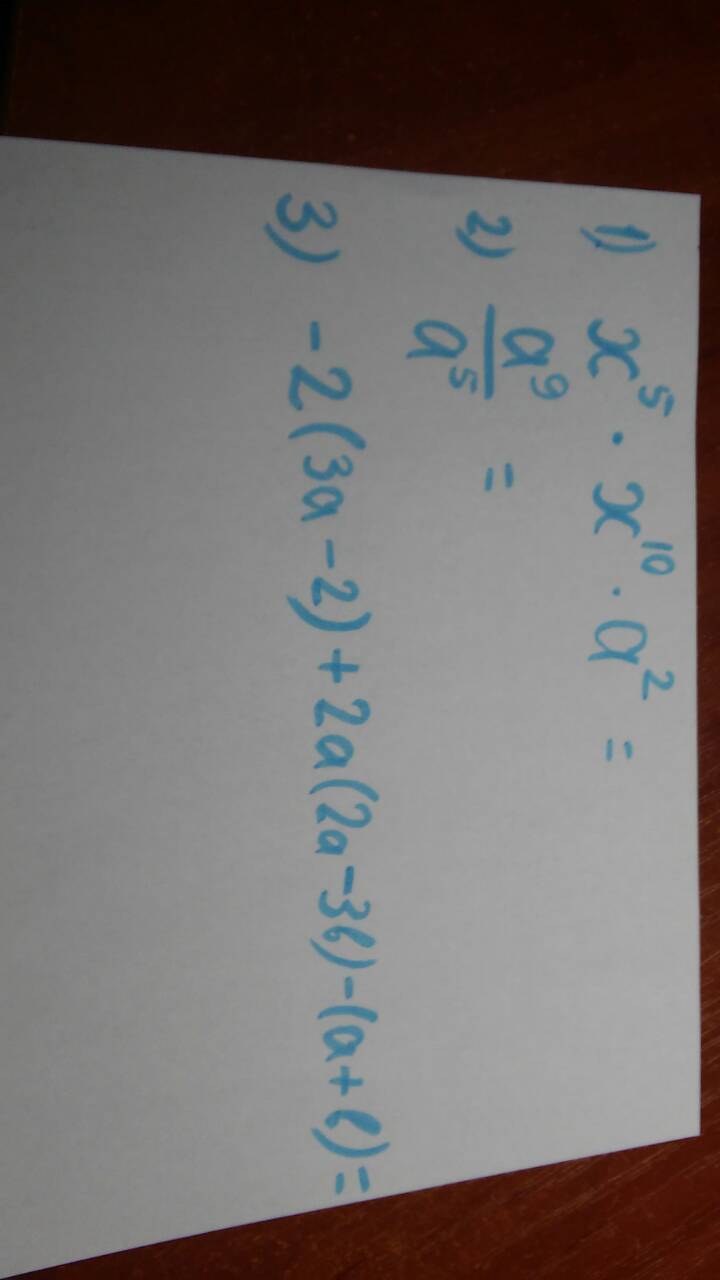 1) x⁵ · x¹⁰ · a² =
2) a⁹/a⁵ =
3) -2(3a-2)+2a(2a-3b)-(a+b)=